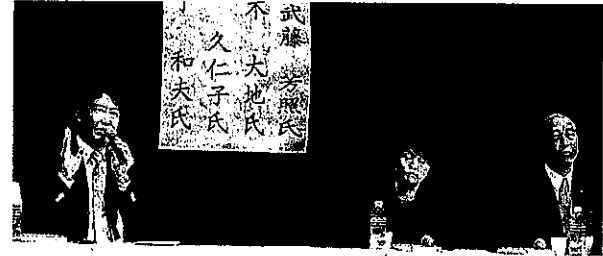 武藤 芳照氏
不 大地氏
久仁子氏
和夫氏